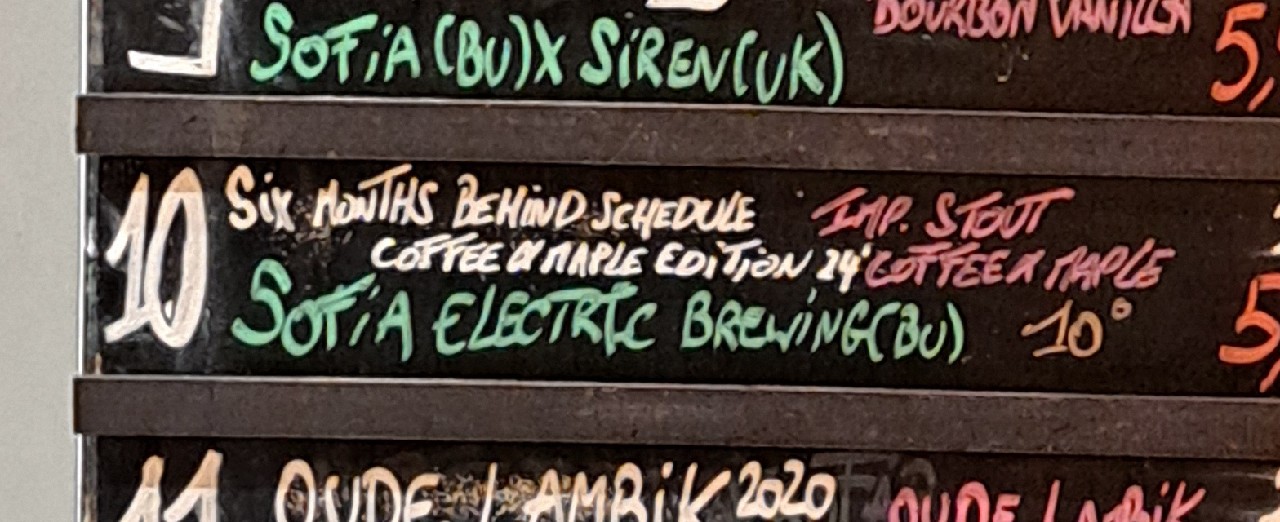 BOURBON VANILLA
SOFiA (BU) X SiREN (UK)
5,
10 Six MONTHS BEHiND SCHEDULE IMP. STOUT
COFFEE & MAPLE EDiTiON 24' COFFEE & MAPLE
SOFiA ELECTRIC BREWiNG (BU) 10° 5,
11 OUDE LAMBiK 2020 OUDE LAMBiK